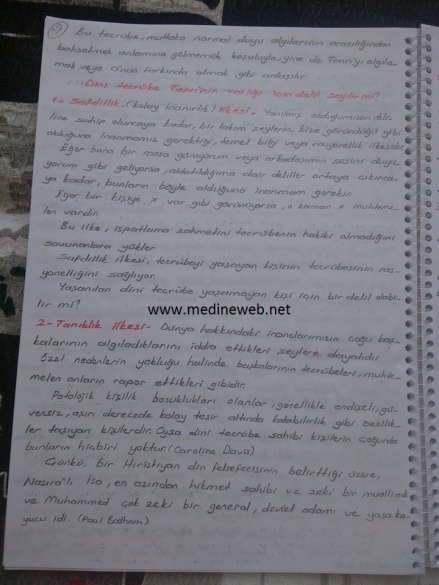 9
Bu tecrübe, mutlaka normal duyu algılarının aracılığından
bahsetmek anlamına gelmemek koşuluyla, yine de Tanrı'yı algıla-
mak veya O'nun farkında olmak gibi anlaşılır.
Dini tecrübe Tanrı'nın varlığı için delil sayılır mı?
1- Safdillik (kolay inanırlık) ilkesi- Yanılmış olduğumuzun deli-
line sahip oluncaya kadar, bir takım şeylerin, bize göründüğü gibi
olduğuna inanmamız gerektiği, temel bilgi veya rasyonellik ilkesidir.
Eğer bana bir masa görüyorum veya arkadaşımın sesini duyu-
yorum gibi geliyorsa, aldatıldığıma dair deliller ortaya çıkınca-
ya kadar, bunların böyle olduğuna inanmam gerekir.
Eğer bir kişiye x var gibi görünüyorsa, o zaman x muhteme-
len vardır.
Bu ilke, ispatlama zahmetini tecrübenin hakiki olmadığını
savunanlara yükler.
Safdillik ilkesi, tecrübeyi yaşayan kişinin tecrübesinin ras-
yonelliğini sağlıyor.
Yaşanılan dini tecrübe yaşamayan kişi için bir delil olabi-
lir mi?
www.medineweb.net
2- Tanıklık ilkesi- Dünya hakkındaki inançlarımızın çoğu baş-
kalarının algıladıklarını iddia ettikleri şeylere dayalıdır.
Özel nedenlerin yokluğu halinde başkalarının tecrübeleri, muhte-
melen onların rapor ettikleri gibidir.
Patolojik kişilik bozuklukları olanlar, genellikle endişeli, gü-
vensiz, aşırı derecede kolay tesir altında kalabilirlik gibi özellik-
ler taşıyan kişilerdir. Oysa dini tecrübe sahibi kişilerin çoğunda
bunların hiçbiri yoktur. (Caroline Davis)
Çünkü, bir Hıristiyan din felsefecisinin belirttiği üzere,
Nasıra'lı İsa, en azından hikmet sahibi ve zeki bir muallimd
ve Muhammed çok zeki bir general, devlet adamı ve yasa ko-
yucu idi. (Paul Badham)